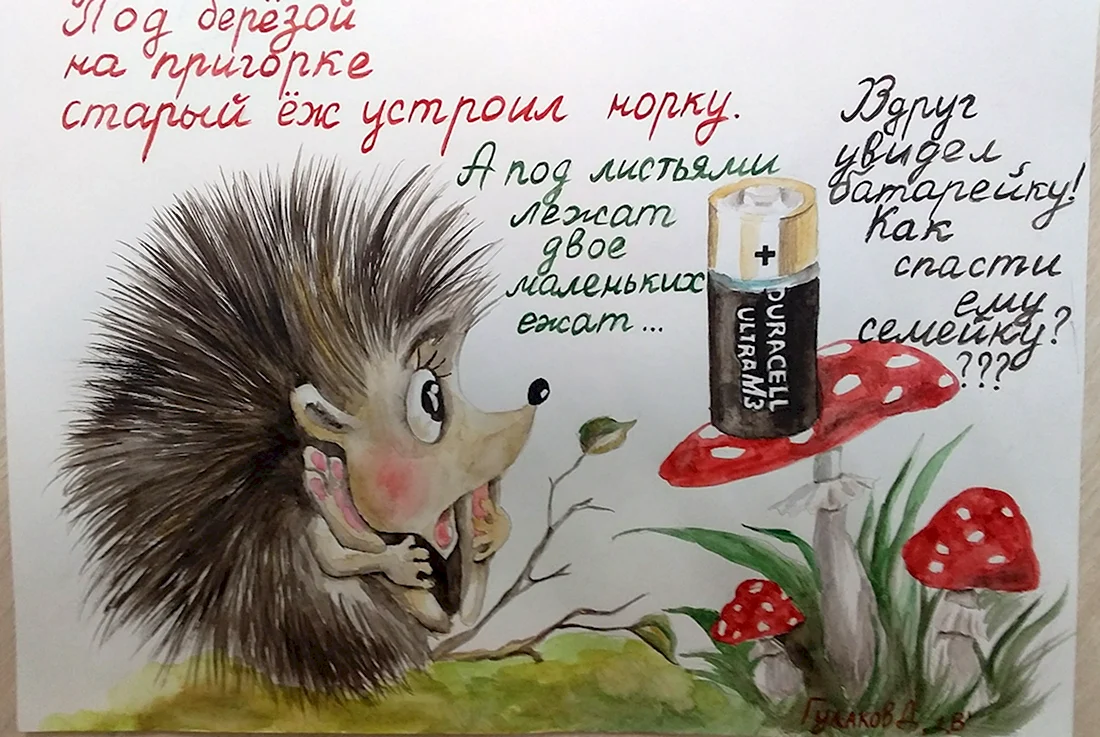 Под берёзой
на пригорке
старый ёж устроил норку.
А под листьями
лежат
двое
маленьких
ежат...
Вдруг
увидел
батарейку!
Как
спасти
ему
семейку?
???
+
DURACELL
ULTRA M3
Гулаков Д. "В"